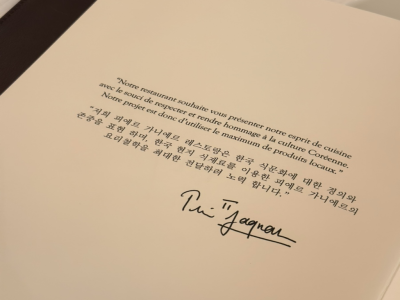 "Notre restaurant souhaite vous présenter notre esprit de cuisine
avec le souci de respecter et rendre hommage à la culture Coréenne.
Notre projet est donc d'utiliser le maximum de produits locaux."
"저희 피에르 가니에르 레스토랑은 한국 식문화에 대한 경의와
존중을 표현 하며, 한국 현지 식재료를 이용한 피에르 가니에르의
요리철학을 최대한 전달하려 노력 합니다."